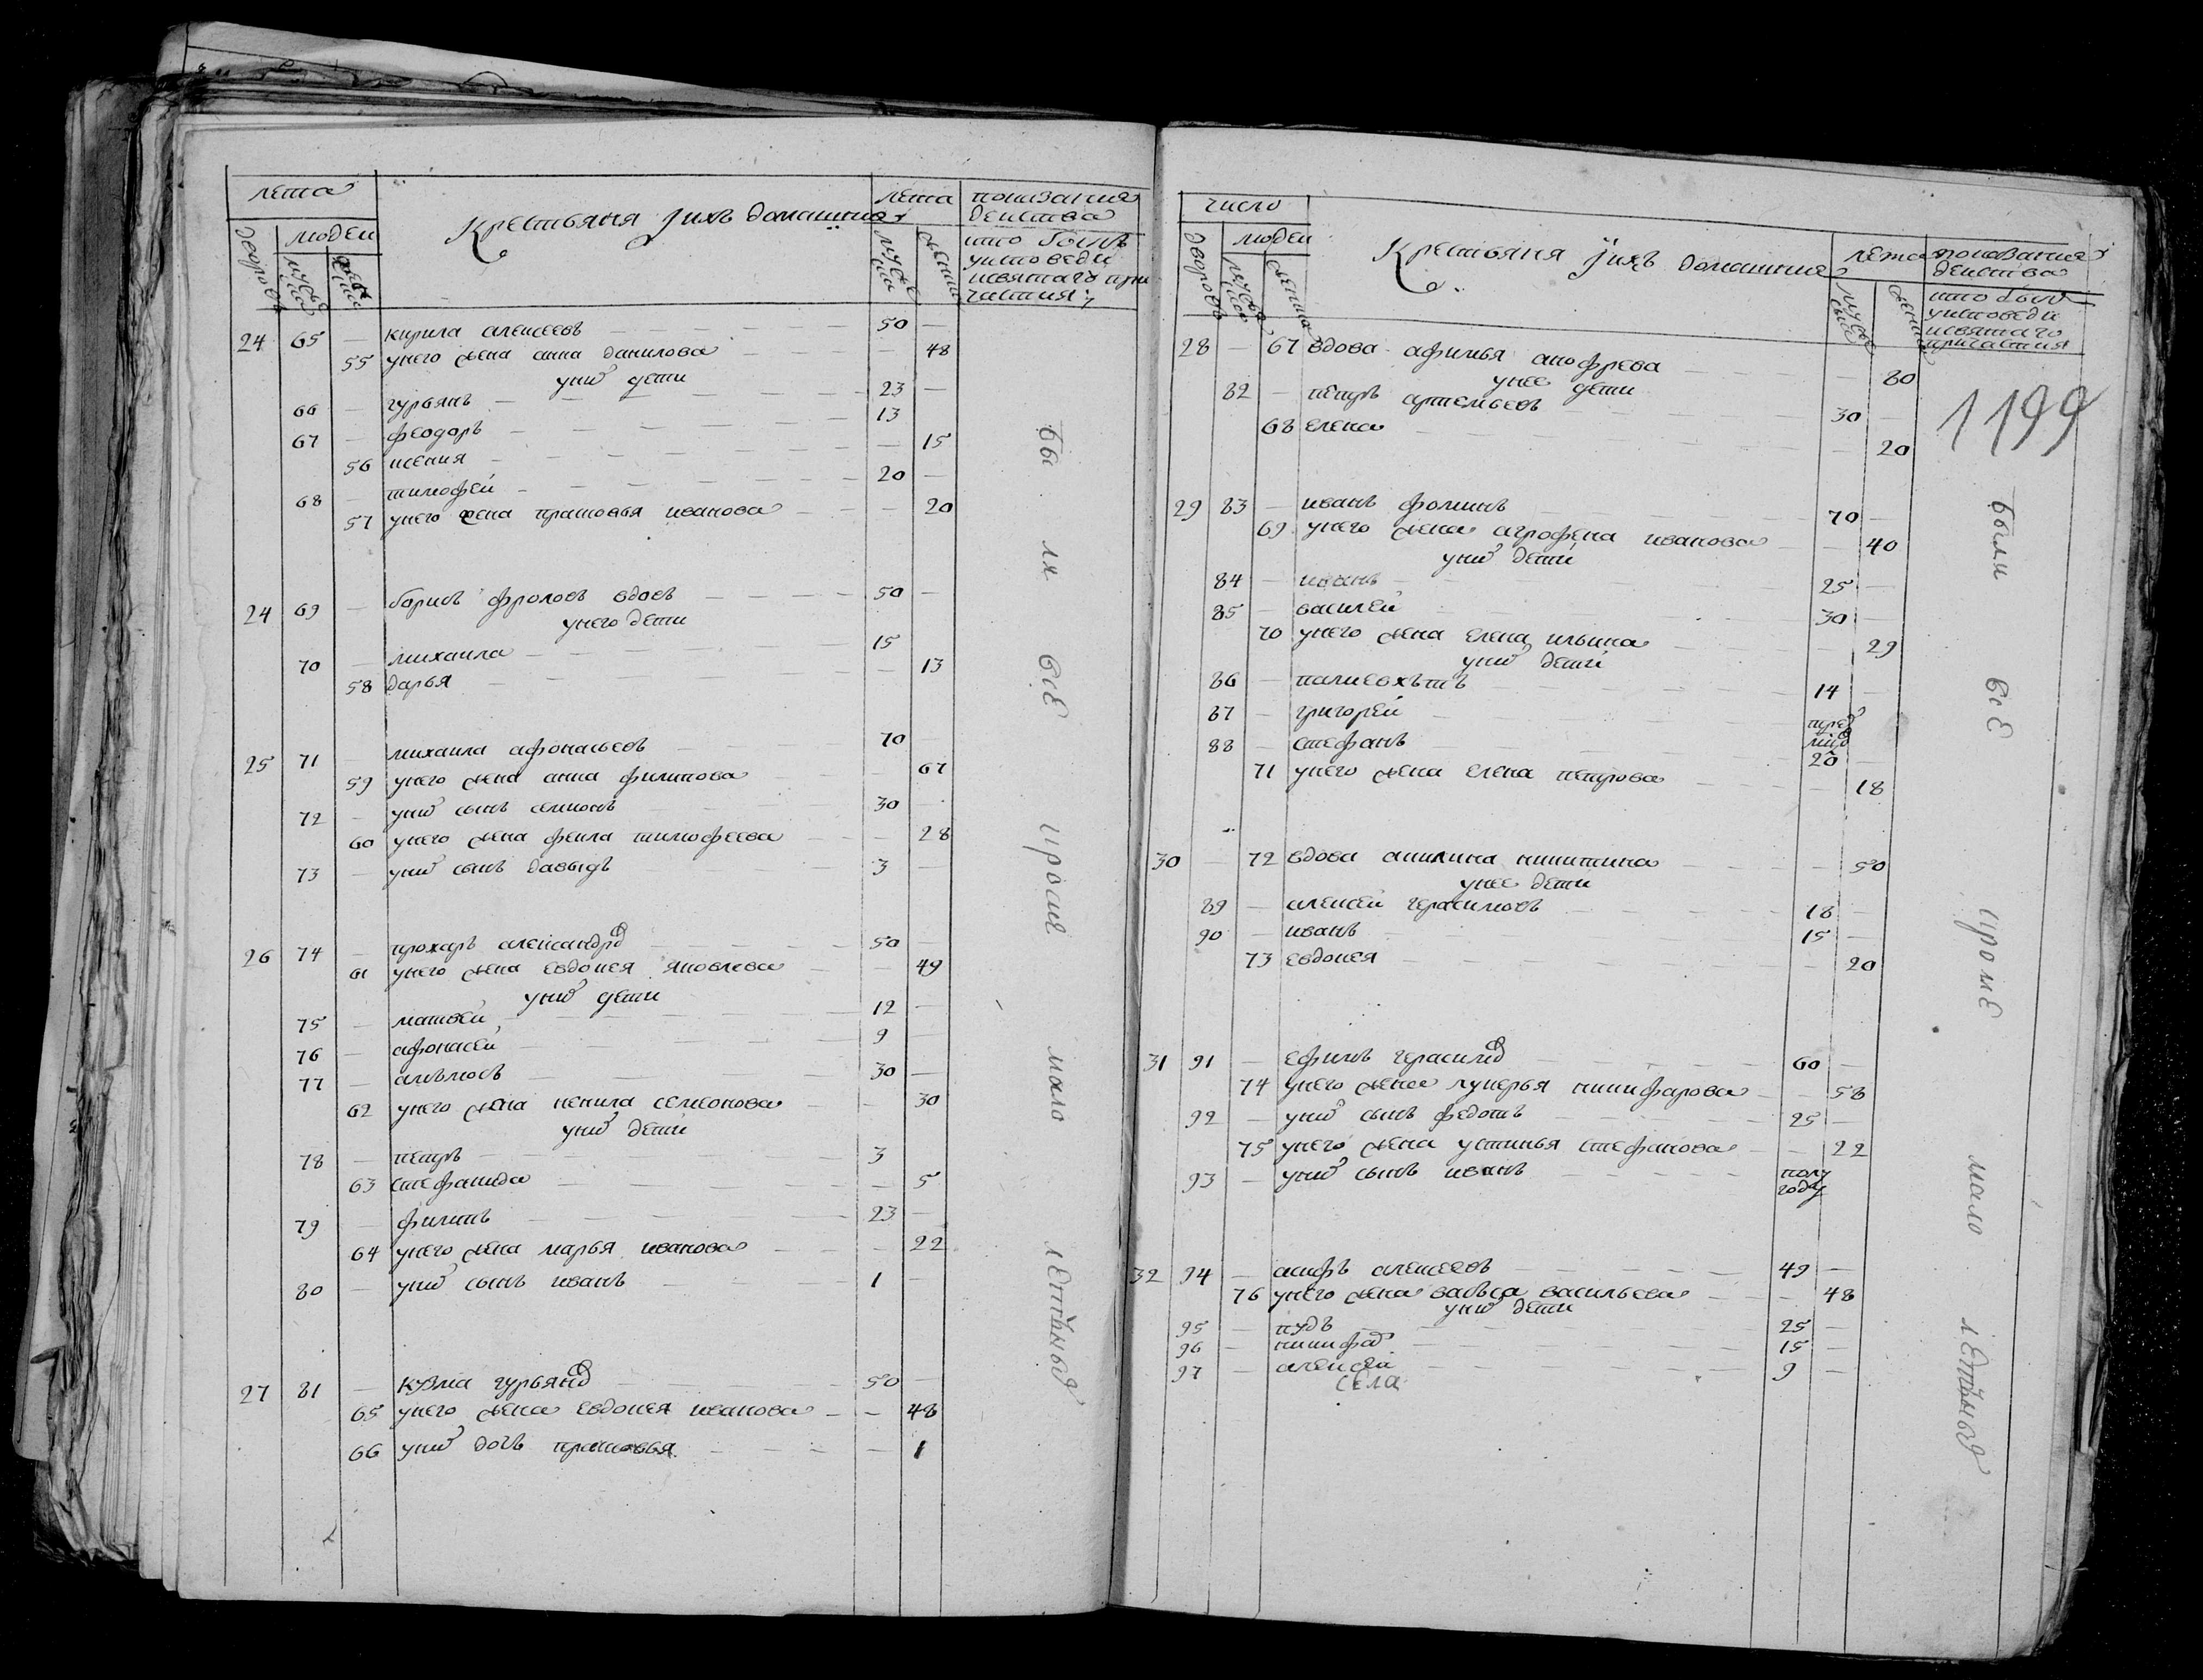 лета
людеи
дворовъ
мужеска
женска
Крестьяня ихъ домашния
лета
мужеска
женска
показания
деиства
кто былъ
уисповеди
исвятаго при
частия
24 65 — кирила алексеевъ — 50 —
55 унего жена анна данилова — 48
уних дети
66 — гурьянъ — 23 —
67 — феодоръ — 13
56 ксения — 15
68 — тимофеи — 20 —
57 унего жена прасковья иванова — 20
24 69 — борисъ фроловъ вдовъ — 50 —
унего дети
70 — михаила — 15
58 дарья — 13
25 71 михаила афонасьевъ — 70 —
59 унего жена анна филипова 67
72 — уних сынъ семионъ 30
60 унего жена фекла тимофеева — 28
73 — уних сынъ давыдъ 3 —
26 74 — прохаръ александров — 50 —
61 унего жена евдокея яковлева — 49
уних дети
75 — матвеи — 12 —
76 — афонасеи — 9
77 — — 30 —
62 унего жена ненила семеонова — 30
уних дети
78 — петръ — 3
63 стефанида — 5
79 — филипъ — 23 —
64 унего жена марья иванова — 22
80 — уних сынъ иванъ — 1 —
27 81 — кузма гурьянов — 50 —
65 унего жена евдокея иванова — 48
66 уних дочь прасковья — 1
бы ли все кроме мало летных
число
людеи
дворовъ
мужеска
женска
Крестьяня ихъ домашния
лета
мужеска
женска
показания
деиства
кто былъ
уисповеди
исвятаго
причастия
1199
28 — 67 вдова афимья анофрева — 80
унее дети
82 — петръ артемьевъ 30 —
68 елена — 20
29 83 — иванъ фоминъ 70 —
69 унего жена агрофена иванова — 40
уних дети
84 — иванъ — 25 —
85 — василеи 30 —
70 унего жена елена ильина — 29
уних дети
86 — 14 —
87 — григореи —
88 — стефанъ — 20 —
71 унего жена елена петрова — 18
30 — 72 вдова акилина никитина — 50
унее дети
89 — алексеи герасимовъ — 18 —
90 — иванъ — 15 —
73 евдокея — 20
31 91 — ефимъ герасимов — 60 —
74 унего жена лукерья никифарова — 58
92 — уних сынъ федотъ — 25 —
75 унего жена устинья стефанова — 22
93 — уних сынъ иванъ — полу
году
32 94 — алексеевъ — 49 —
76 унего жена васильева — 48
уних дети
95 — пудъ — 25 —
96 — никифор — 15 —
97 — алексеи — 9 —
села
были все кроме мало летных